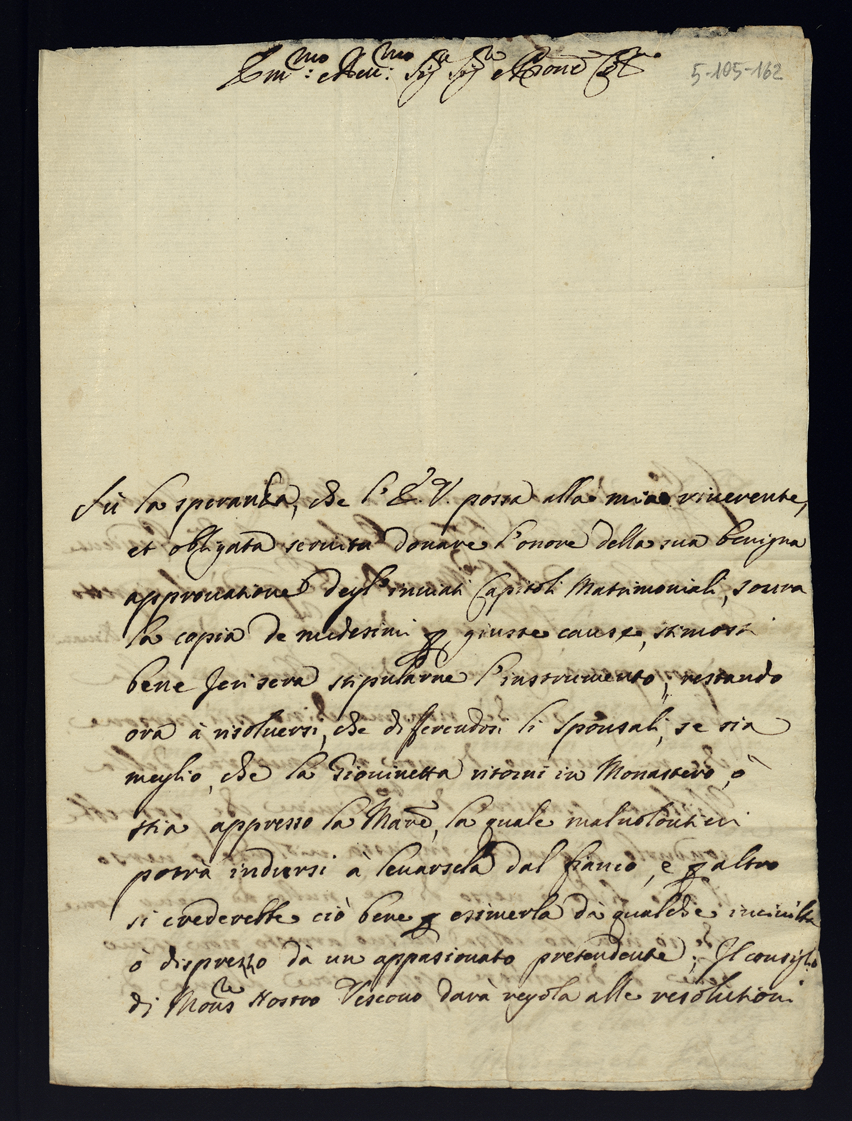 Em:mo e Reu:mo Sig.r Sig.r e Prone Col.mo
5-105-162
Sù la speranza, che l'E.V. possa alla mia riuerente,
et obligata seruitù donare l'onore della sua benigna
approuatione degl'inuiati Capitoli Matrimoniali, soura
la copia de medesimi p giuste cause, stimossi
bene Jeri sera stipularne l'instrumento, restando
ora à risoluersi, che differendosi li sponsali, se sia
meglio, che la Giouinetta ritorni in Monastero, ò
stia appresso la Mare, la quale maluolontieri
potrà indursi à leuarsela dal fianco, e p altro
si crederebbe ciò bene p esimerla dà qualche inciuiltà
ò disprezzo dà un appasionato pretendente; Il consiglio
di Mons.re Nostro Vescouo darà regola alle resolutioni